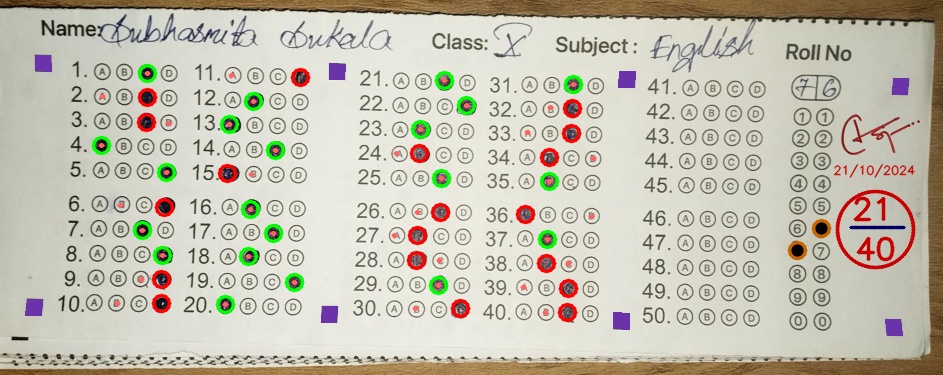 Name: Subhasmita Dukala Class: X Subject: English Roll No
1. A B D
2. A B D
3. A B D
4. B C D
5. A B C
6. A B C
7. A B D
8. A B C
9. A B C
10. A B C
11. A B C
12. A C D
13. B C D
14. A B D
15. B C D
16. A C D
17. A B D
18. A C D
19. A B C
20. B C D
21. A B D
22. A B C
23. A C D
24. A C D
25. A B D
26. A B D
27. A C D
28. A C D
29. A B D
30. A B C
31. A B D
32. A B D
33. A B D
34. A C D
35. A C D
36. B C D
37. A C D
38. A C D
39. A B D
40. A B D
41. A B C D
42. A B C D
43. A B C D
44. A B C D
45. A B C D
46. A B C D
47. A B C D
48. A B C D
49. A B C D
50. A B C D
7 6
1 1
2 2
3 3
4 4
5 5
6
7
8 8
9 9
0 0
21/10/2024
21
40